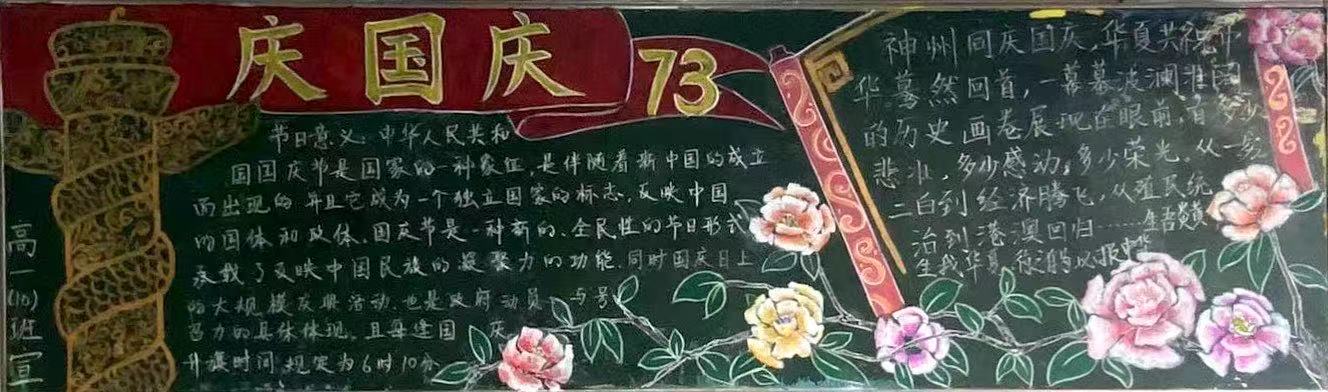 庆国庆
73
节日意义:中华人民共和
国国庆节是国家的一种象征,是伴随着新中国的成立
而出现的 并且它成为一个独立国家的标志,反映中国
的国体和政体。国庆节是一种新的、全民性的节日形式
承载了反映中国民族的凝聚力的功能,同时国庆日上
的大规模庆典活动,也是政府动员 与号
召力的具体体现。且每逢国 庆
升旗时间规定为6时10分
神州同庆国庆,华夏共祝
华。蓦然回首,一幕幕波澜壮阔
的历史画卷展现在眼前,有多少
悲壮,多少感动,多少荣光。从一穷
二白到经济腾飞,从殖民统
治到港澳回归……
生我华夏
高一(10)班宣